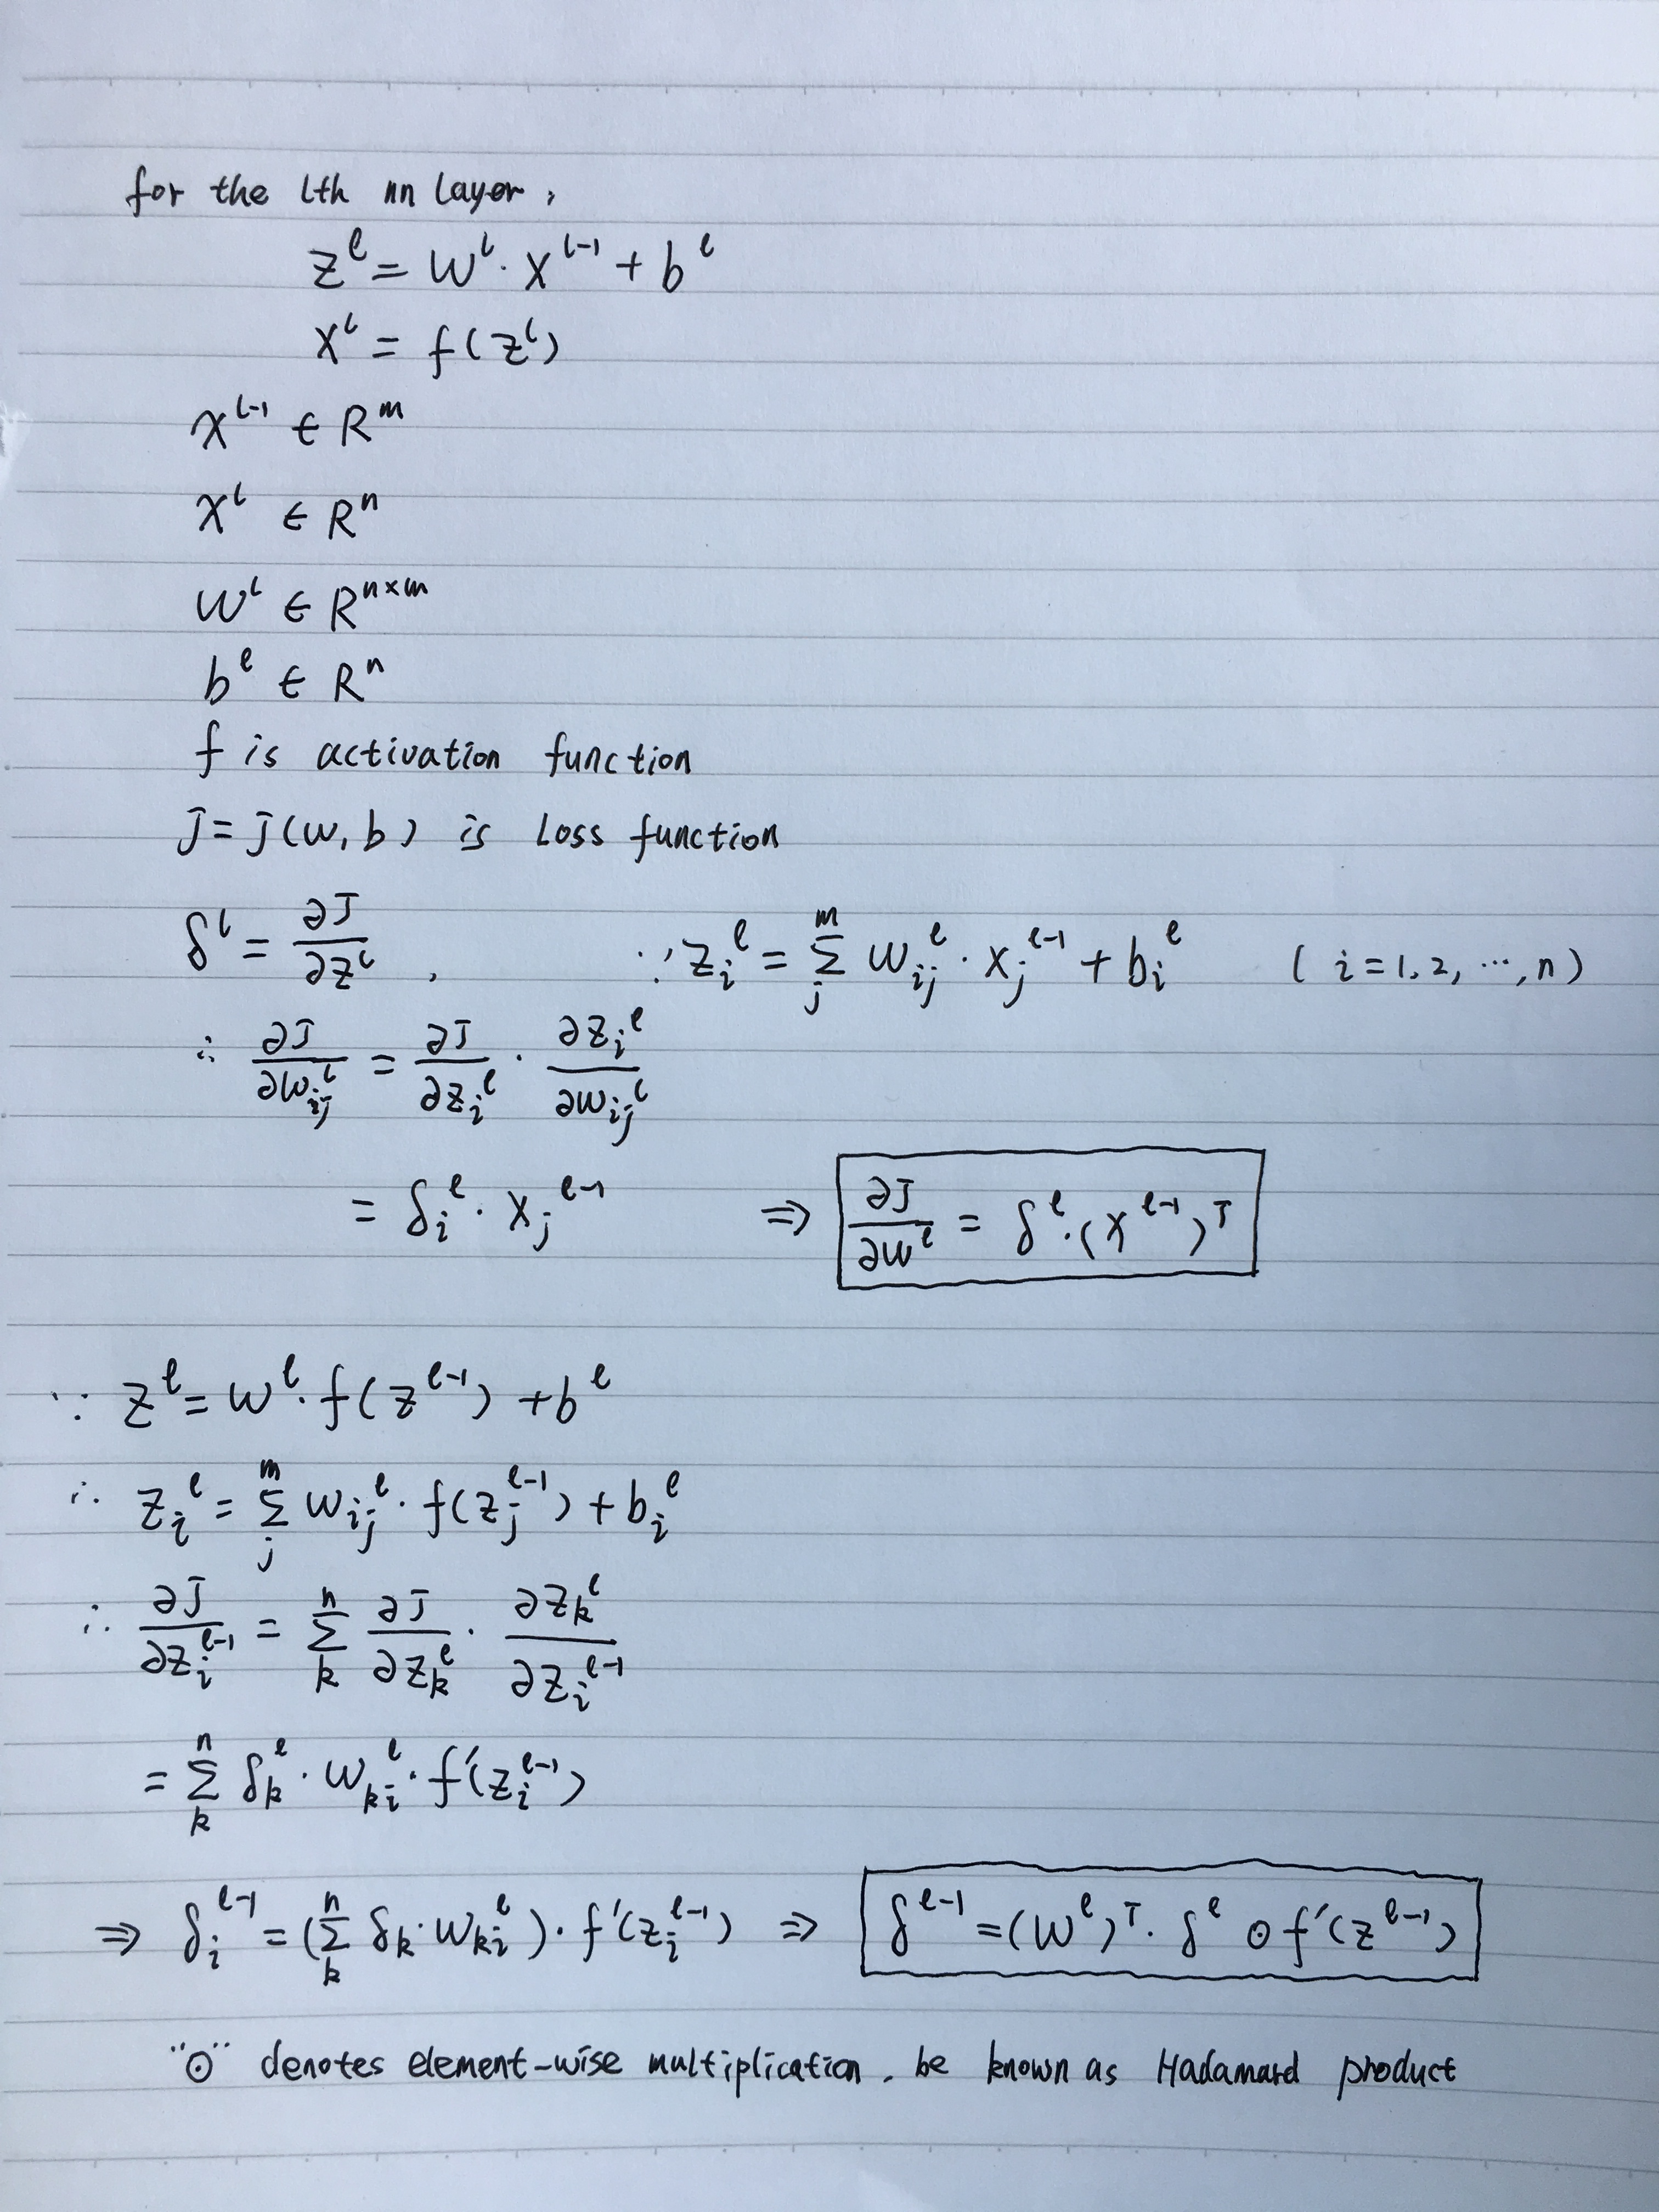 for the lth nn layer,
z^l = W^l · x^{l-1} + b^l
x^l = f(z^l)
x^{l-1} ∈ R^m
x^l ∈ R^n
W^l ∈ R^{n×m}
b^l ∈ R^n
f is activation function
J = J(w, b) is Loss function
δ^l = ∂J/∂z^l , ∵ z_i^l = Σ_j^m w_{ij}^l · x_j^{l-1} + b_i^l ( i = 1, 2, ⋯, n )
∴ ∂J/∂w_{ij}^l = ∂J/∂z_i^l · ∂z_i^l/∂w_{ij}^l
= δ_i^l · x_j^{l-1} ⇒ ∂J/∂W^l = δ^l · (x^{l-1})^T
∵ z^l = W^l · f(z^{l-1}) + b^l
∴ z_i^l = Σ_j^m w_{ij}^l · f(z_j^{l-1}) + b_i^l
∴ ∂J/∂z_i^{l-1} = Σ_k^n ∂J/∂z_k^l · ∂z_k^l/∂z_i^{l-1}
= Σ_k^n δ_k^l · w_{ki}^l · f'(z_i^{l-1})
⇒ δ_i^{l-1} = (Σ_k^n δ_k · w_{ki}^l) · f'(z_i^{l-1}) ⇒ δ^{l-1} = (W^l)^T · δ^l ⊙ f'(z^{l-1})
"⊙" denotes element-wise multiplication, be known as Hadamard product